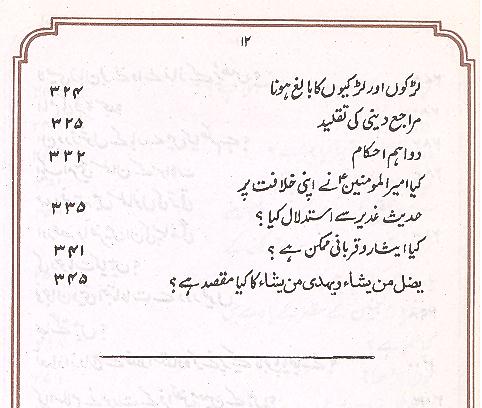 ۱۲
لڑکوں اور لڑکیوں کا بالغ ہونا ۳۲۴
مراجع دینی کی تقلید ۳۲۵
دو اہم احکام ۳۳۲
کیا امیرالمومنینؑ نے اپنی خلافت پر
حدیث غدیر سے استدلال کیا ؟ ۳۳۵
کیا ایثار و قربانی ممکن ہے ؟ ۳۴۱
یضل من یشاء و یہدی من یشاء کا کیا مقصد ہے ؟ ۳۴۵